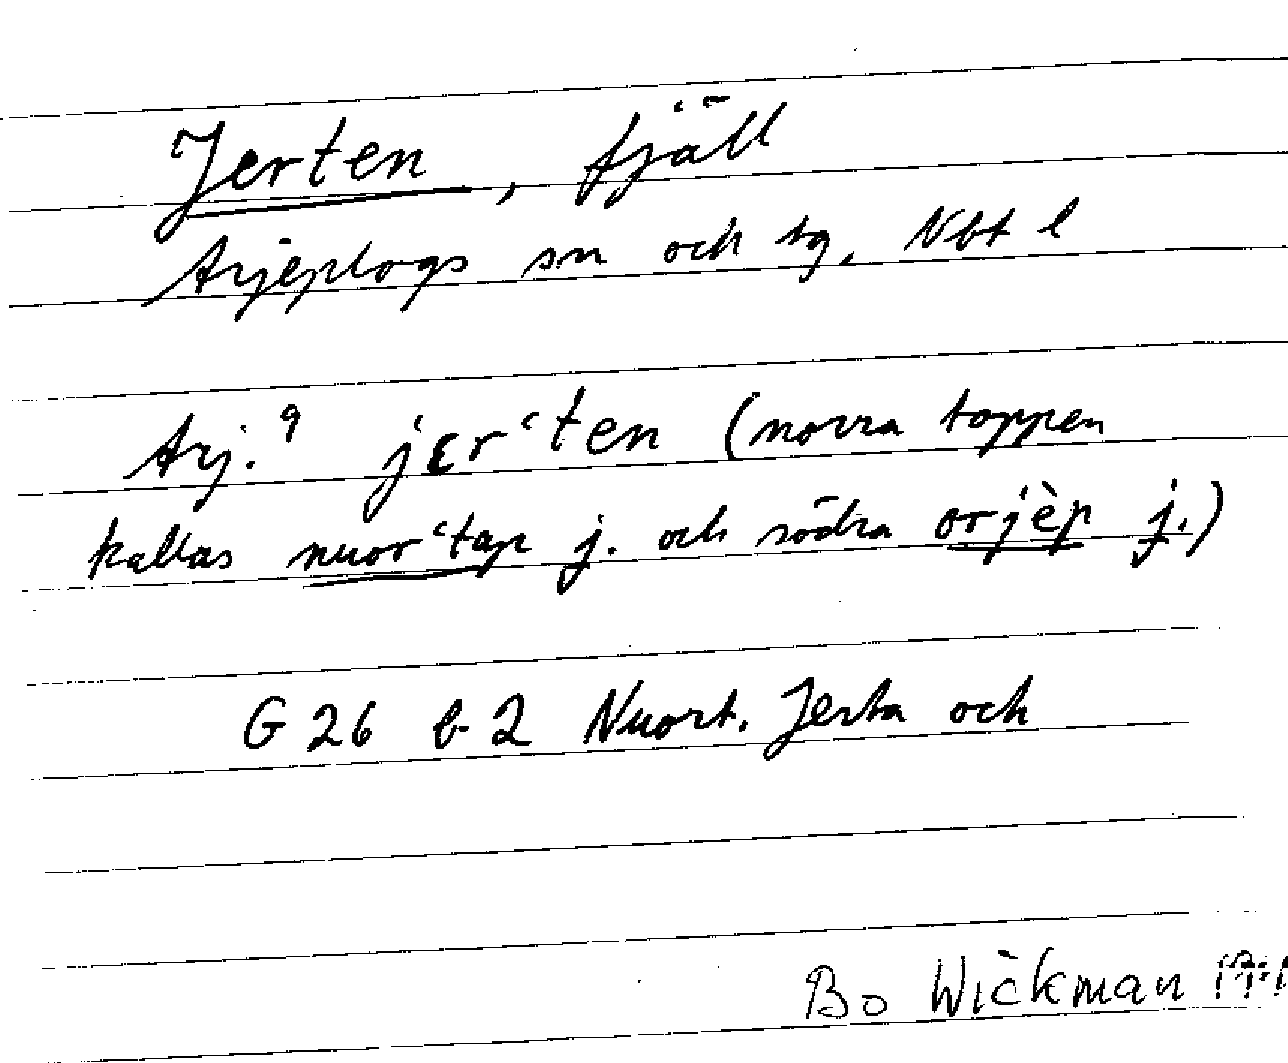 Jerten, fjäll
Arjeplogs sn och tg, Nbt l
Arj.9 jɛrʿten (norra toppen
kallas nuorʿtap j. och södra orjèp j.)
G 26 b 2 Nuort. Jerta och
Bo Wickman